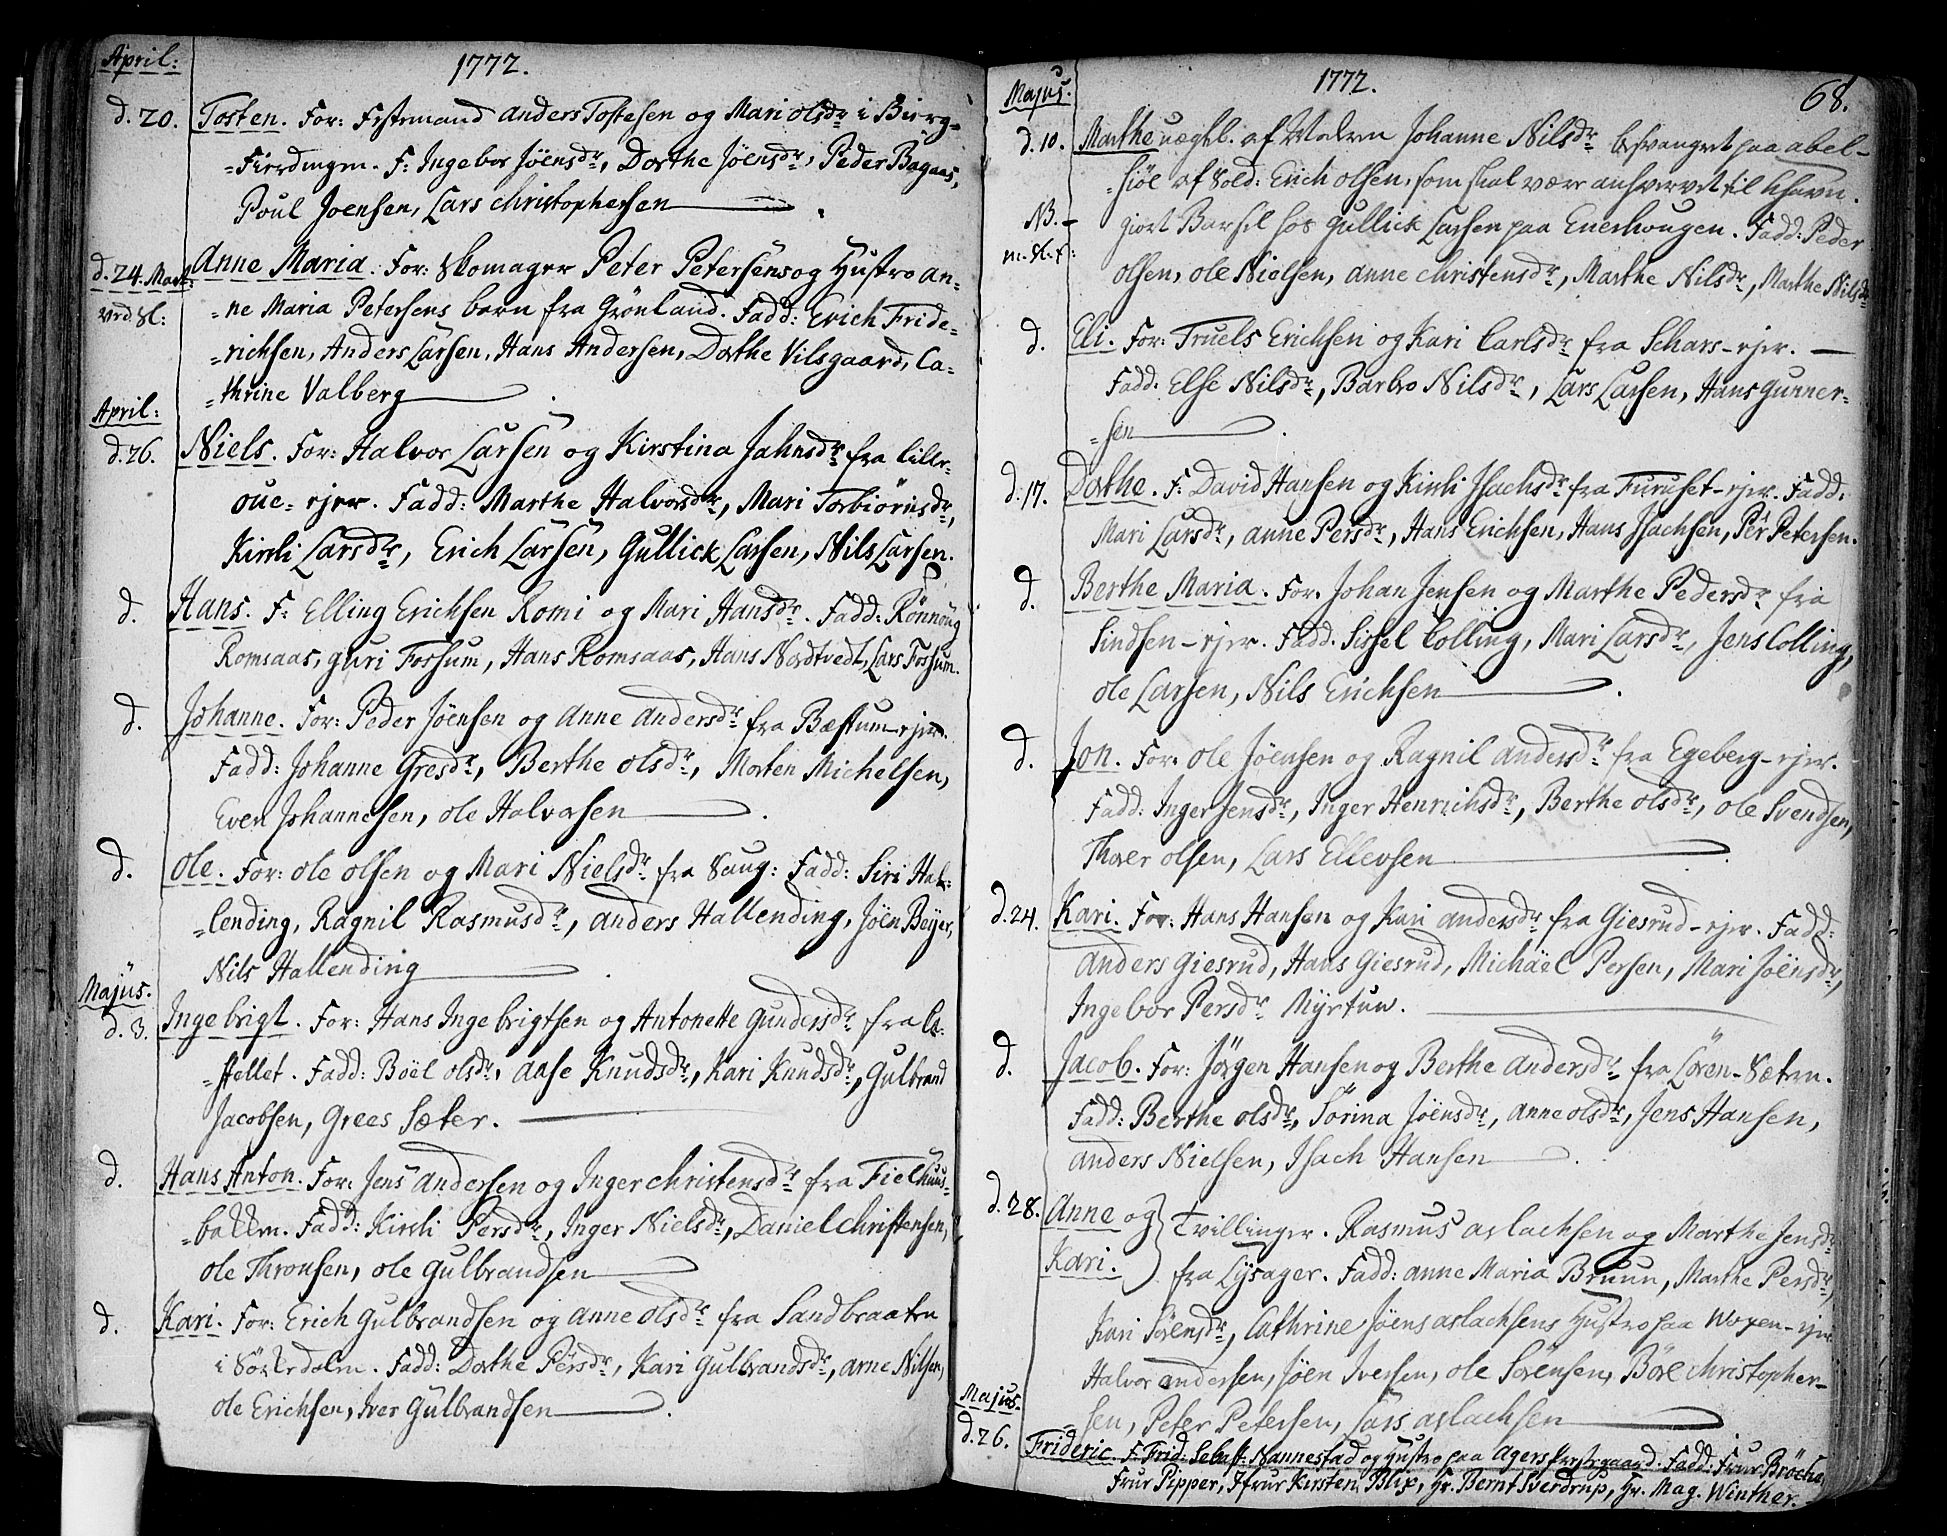 April:
1772.
d. 20. Tosten. For: Festemand Anders Tostesen og Mari Olsdr i Bierg-
-Fierdingen. F: Ingebor Jöensdr, Dorthe Jöensdr, Peder Bagaas,
Poul Joensen, Lars Christophersen
d. 24. Mart: Anne Maria. For: Skomager Peter Petersens og Hustro An-
-ne Maria Petersens barn fra Grönland. Fadd: Erich Fride-
-richsen, Anders Larsen, Hans Andersen, Dorthe Vilsgaard, Ca-
-thrine Valberg
April:
d. 26. Niels. For: Halvor Larsen og Kirstina Jahnsdr fra Lille-
oue-ejer. Fadd: Marthe Halvorsdr, Mari Torbiörnsdr,
Kirsti Larsdr, Erich Larsen, Gullick Larsen, Nils Larsen.
d. Hans. F: Elling Erichsen Romi og Mari Hansdr. Fadd: Rönnöug
Romsaas, Guri Fossum, Hans Romsaas, Hans Nordtvedt, Lars Fossum.
d. Johanne. For: Peder Jöensen og Anne Andersdr fra Bæstum-ejer.
Fadd: Johanne Gresdr, Berthe Olsdr, Morten Michelsen,
Even Johannesen, Ole Halvorsen
d. Ole. For: Ole Olsen og Mari Nielsdr fra Saug: Fadd: Siri Hal-
-lending, Ragnil Rasmusdr, Anders Hallending, Jöen Beijer,
Nils Hallending
Majus.
d. 3. Ingebrigt. For: Hans Ingebrigtsen og Antonette Gundersdr fra
-stellet. Fadd: Böel Olsdr, Aase Knudsdr, Kari Knudsdr, Gulbrand
Jacobsen, Grees Sæter.
d. Hans Anton. For: Jens Andersen og Inger Christensdr fra Fielhuus-
-bakken. Fadd: Kirsti Persdr, Inger Nielsdr, Daniel Christensen,
Ole Thronsen, Ole Gulbrandsen
d. Kari. For: Erich Gulbrandsen og Anne Olsdr fra Sandbraaten
i Sörkedalen. Fadd: Dorthe Persdr, Kari Gulbrandsdr, Arne Nilsen,
Ole Erichsen, Iver Gulbrandsen
Majus.
1772.
68.
d. 10. Marthe uægtl. af Moderen Johanne Nilsdr besvangret paa Abel-
-siöe af Sold: Erich Olsen, som skal være anhvervet til Khavn.
NB.- giort Barsel hos Gullick Larsen paa Enerhougen. Fadd: Peder
Olsen, Ole Nielsen, Anne Christensdr, Marthe Nilsdr, Marthe Nilsdr
d. Eli. For: Truels Erichsen og Kari Carlsdr fra Schars-ejer.
Fadd: Else Nilsdr, Barbro Nilsdr, Lars Larsen, Hans Gunner-
-sen
d. 17. Dorthe. F: David Hansen og Kirsti Isachsdr fra Furuset-ejer. Fadd:
Mari Larsdr, Anne Persdr, Hans Erichsen, Hans Isachsen, Pér Petersen.
d. Berthe Maria. For: Johan Jensen og Marthe Pedersdr fra
Sindsen-ejer. Fadd: Sissel Colling, Mari Larsdr, Jens Colling,
Ole Larsen, Nils Erichsen
d. Jon. For: Ole Jöensen og Ragnil Andersdr fra Egeberg-ejer.
Fadd: Inger Jensdr, Inger Henrichsdr, Berthe Olsdr, Ole Svendsen,
Thoer Olsen, Lars Ellevsen
d. 24. Kari. For: Hans Hansen og Kari Andersdr fra Giesrud-ejer. Fadd:
Anders Giesrud, Hans Giesrud, Michäel Persen, Mari Jöensdr,
Ingebor Persdr Myrtun.
d. Jacob. For: Jörgen Hansen og Berthe Andersdr fra Lören-Sæteren.
Fadd: Berthe Olsdr, Sörina Jöensdr, Anne Olsdr, Jens Hansen,
Anders Nielsen, Isach Hansen
d. 28. Anne og Kari. Tvillinger. Rasmus Aslachsen og Marthe Jensdr
fra Lysager. Fadd: Anne Maria Bruun, Marthe Persdr,
Kari Sörensdr, Cathrine Jöens Aslachsens Hustro paa Woxen-ejer
Halvor Andersen, Jöen Iversen, Ole Sörensen, Böe Christopher-
-sen, Peter Petersen, Lars Aslachsen
Majus.
d. 26. Frideric. F. Frid: Sebast: Nannestad og Hustro paa Agers Prestegaard: Fadd: Frue Bröcha
Frue Pipper, Jfrue Kirsten Blix, Hr. Bernt Sverdrup, Hr. Mag. Winther.